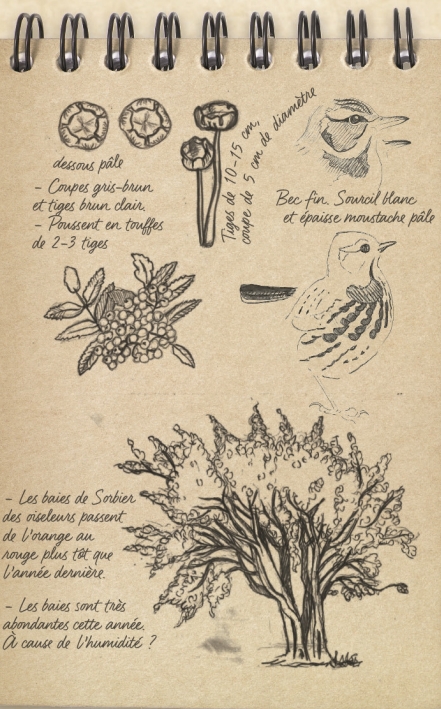 dessous pâle
- Coupes gris-brun
et tiges brun clair.
- Poussent en touffes
de 2-3 tiges
Tiges de 10-15 cm,
coupe de 5 cm de diamètre
Bec fin. Sourcil blanc
et épaisse moustache pâle
- Les baies de Sorbier
des oiseleurs passent
de l'orange au
rouge plus tôt que
l'année dernière.
- Les baies sont très
abondantes cette année.
À cause de l'humidité ?